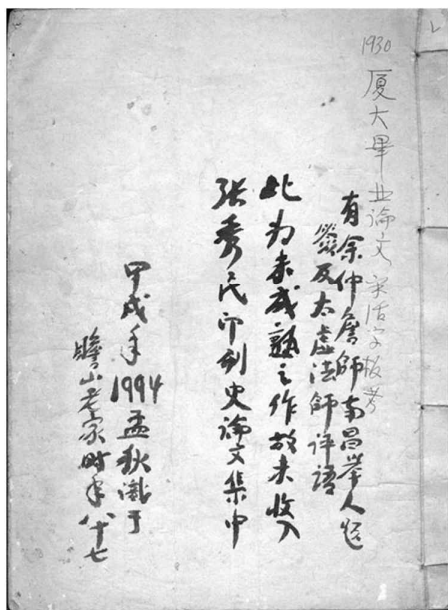 1930 厦大畢业論文 宋活字板考
有余仲詹師南昌舉人題
籤及太虚法師评語
此为未成熟之作故未收入
张秀民印刷史論文集中
甲戌年1994孟秋識于
瞻山老家時年八十七